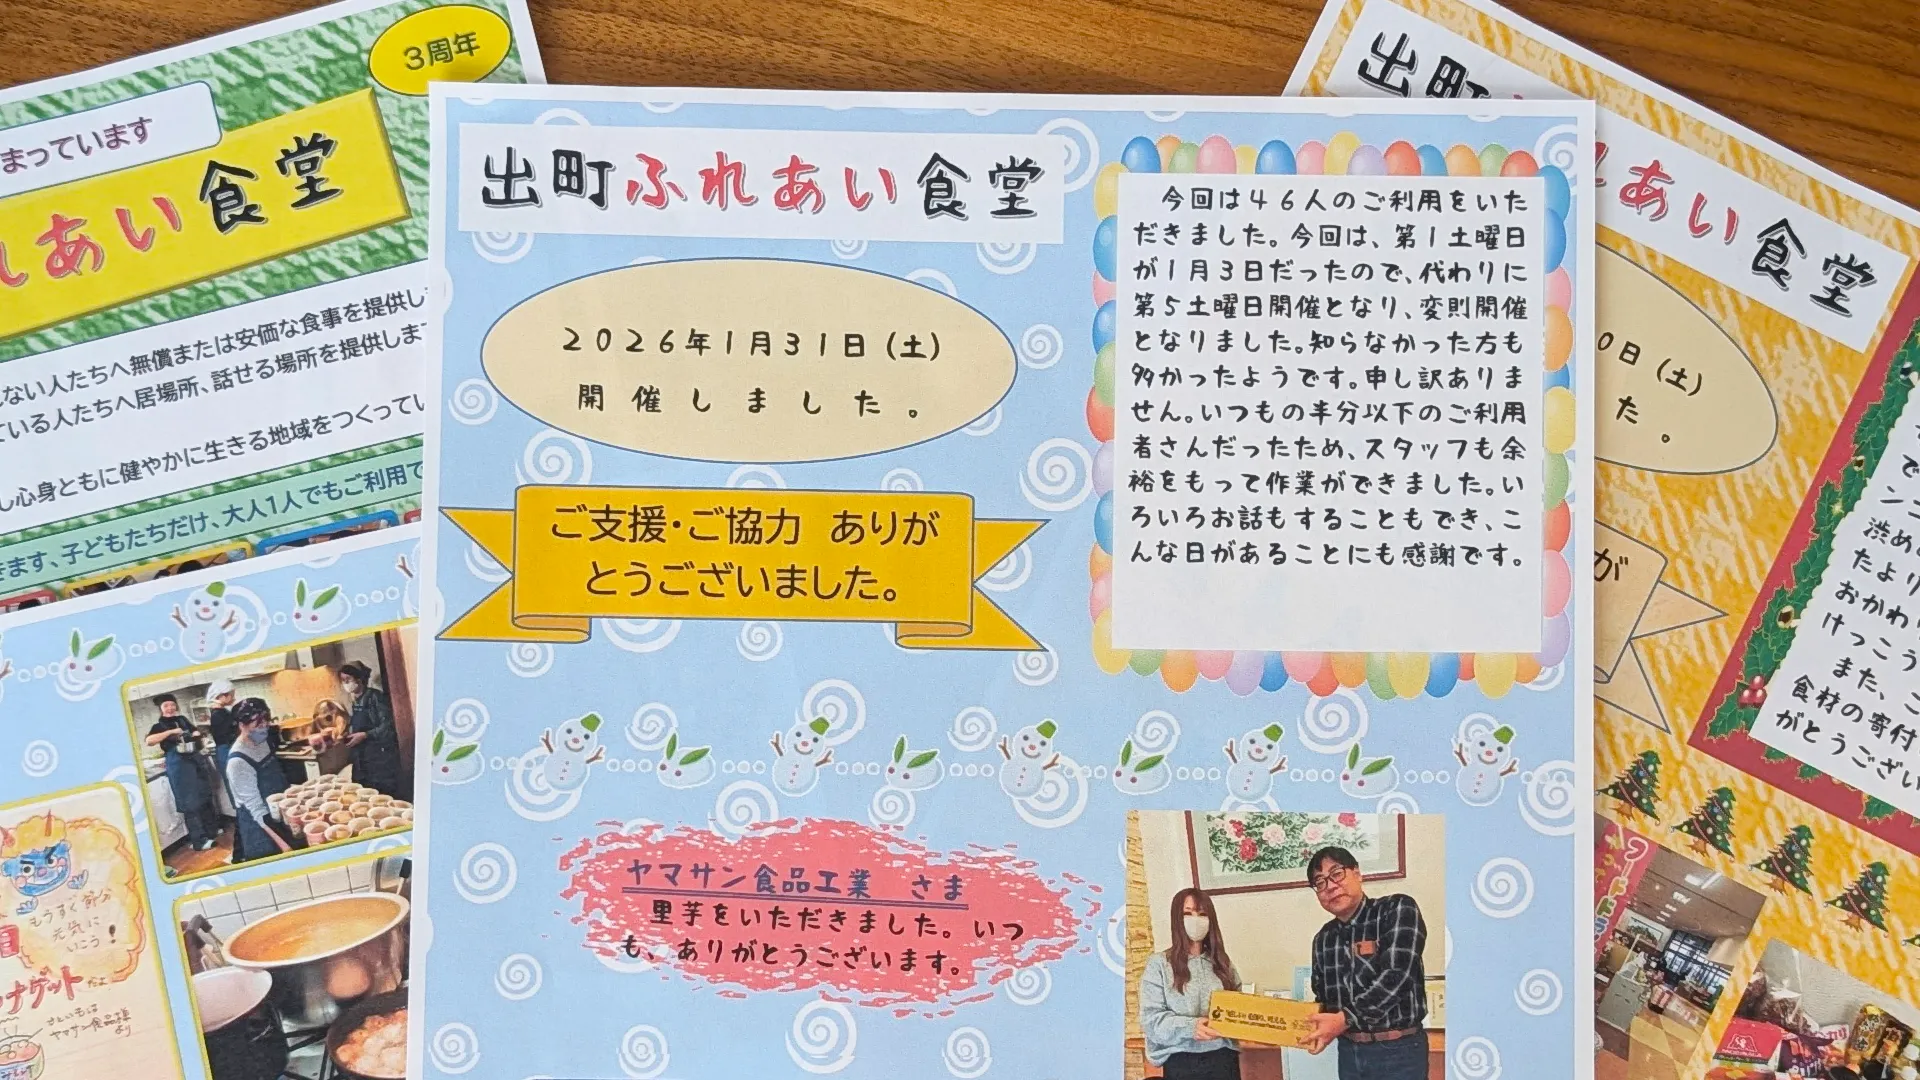 3周年
まっています
れあい食堂
ない人たちへ無償または安価な食事を提供し
ている人たちへ居場所、話せる場所を提供しま
し心身ともに健やかに生きる地域をつくってい
きます、子どもたちだけ、大人1人でもご利用で
もうすぐ節分
元気に
いこう!
ナゲット だよ
ヤマサン食品様
より
出町ふれあい食堂
2026年1月31日(土)
開催しました。
ご支援・ご協力 ありが
とうございました。
今回は46人のご利用をいた
だきました。今回は、第1土曜日
が1月3日だったので、代わりに
第5土曜日開催となり、変則開催
となりました。知らなかった方も
多かったようです。申し訳ありま
せん。いつもの半分以下のご利用
者さんだったため、スタッフも余
裕をもって作業ができました。い
ろいろお話もすることもでき、こ
んな日があることにも感謝です。
ヤマサン食品工業 さま
里芋をいただきました。いつ
も、ありがとうございます。
出町ふ
れあい食堂
0日(土)
た。
が
で
ン
渋め
たより
おかわり
けっこう
また、こ
食材の寄付
がとうござい
フードドラ